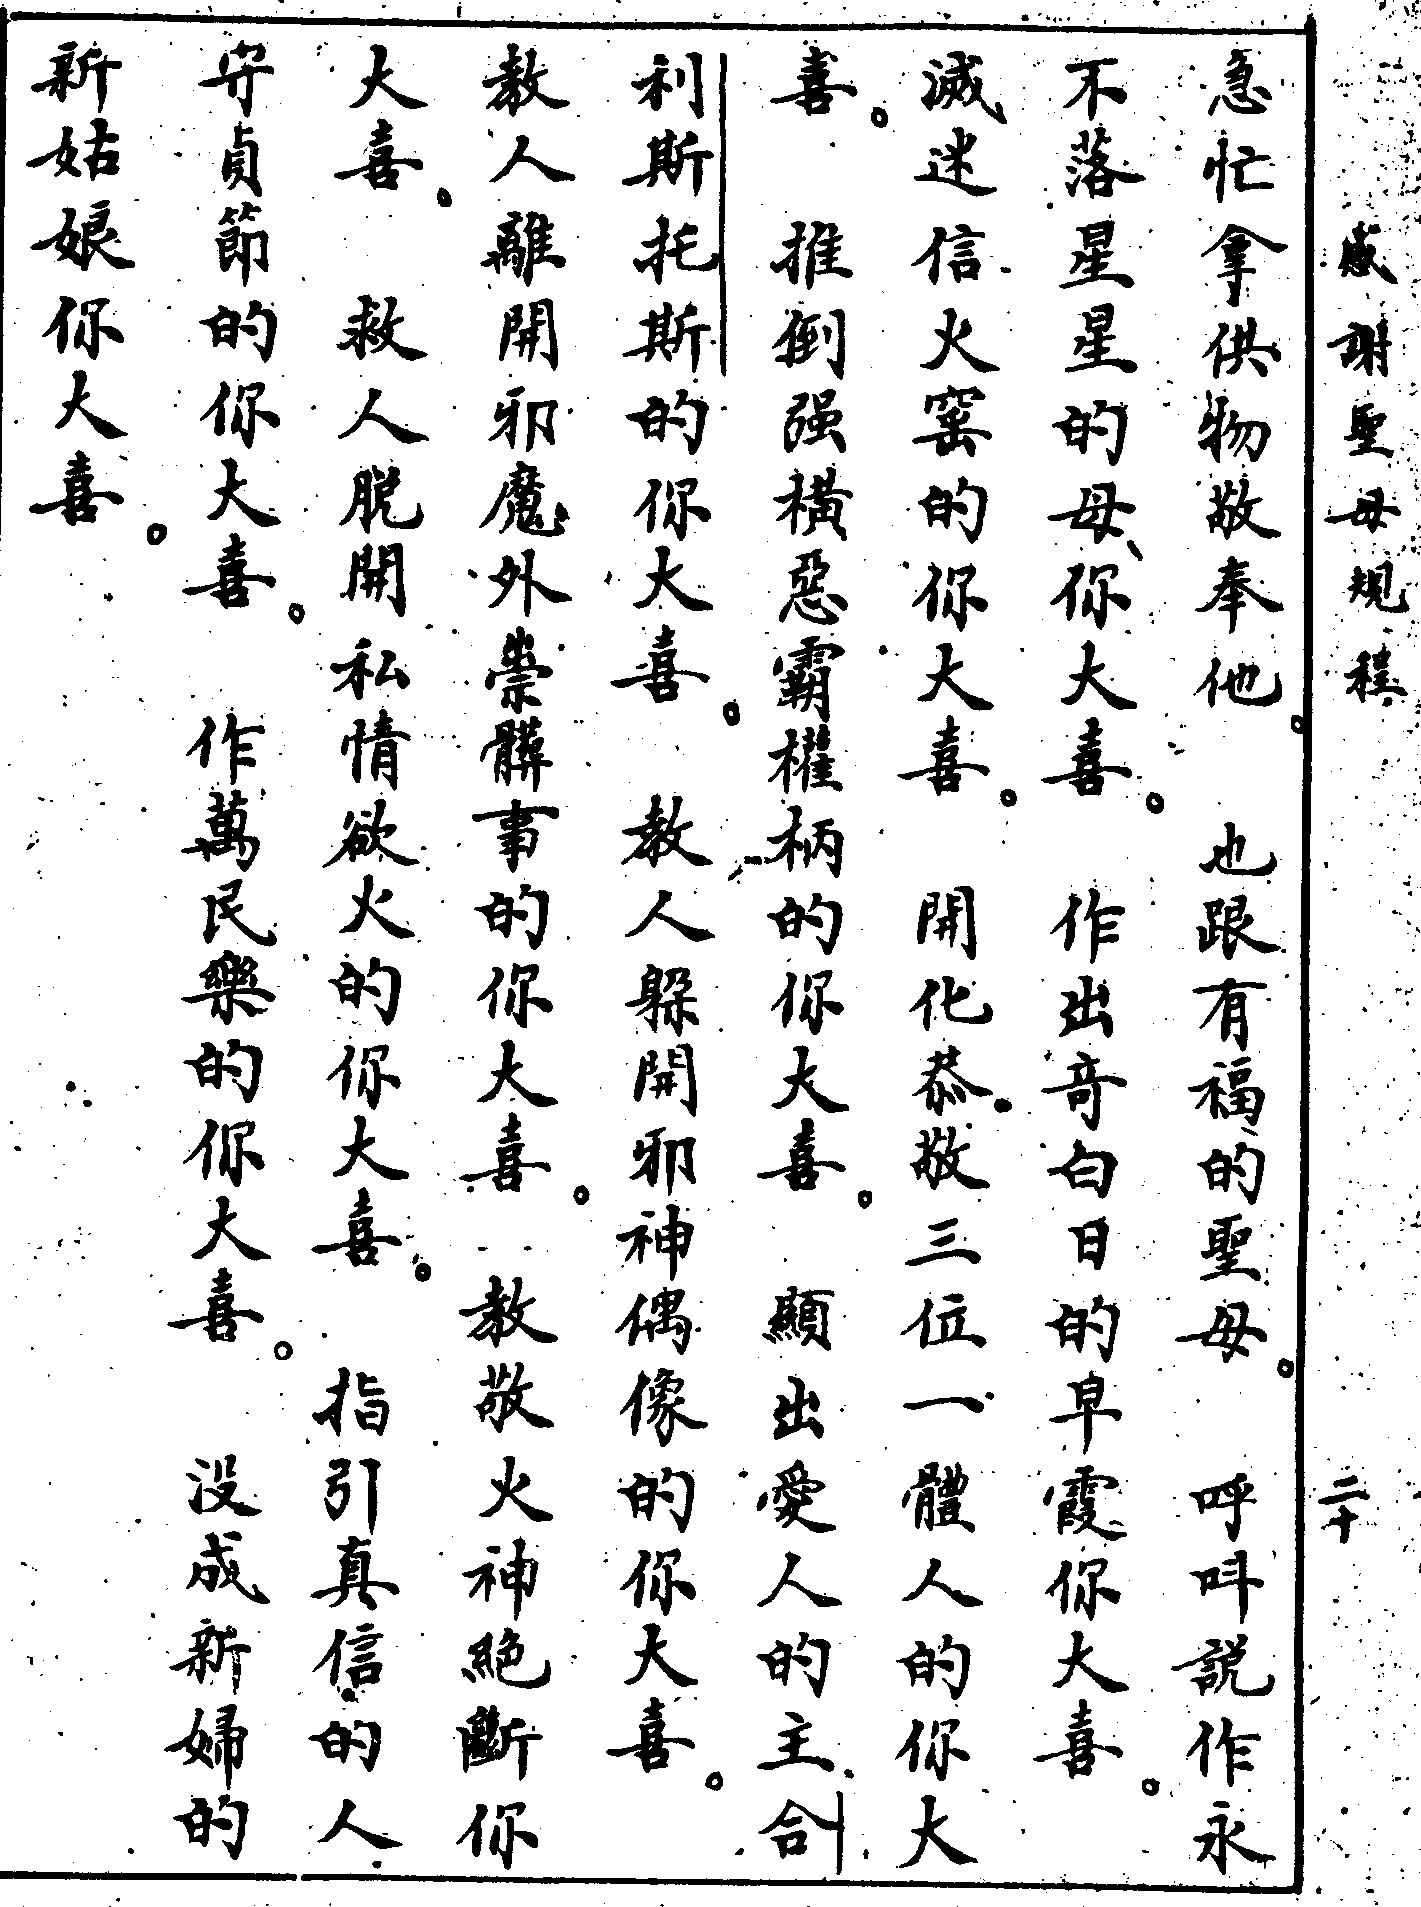 感謝聖母規程 二十
急忙拿供物敬奉他。 也跟有福的聖母。 呼呌説作永
不落星星的母、你大喜。 作出奇白日的早霞你大喜。
滅迷信火窰的你大喜。 開化恭敬三位一體人的你大
喜。 推倒强橫惡霸權柄的你大喜。 顯出愛人的主合
利斯托斯的你大喜。 教人躲開邪神偶像的你大喜。
教人離開邪魔外祟髒事的你大喜。 教敬火神絕斷你
大喜。 救人脫開私情欲火的你大喜。 指引真信的人
守貞節的你大喜。 作萬民樂的你大喜。 没成新婦的
新姑娘你大喜。